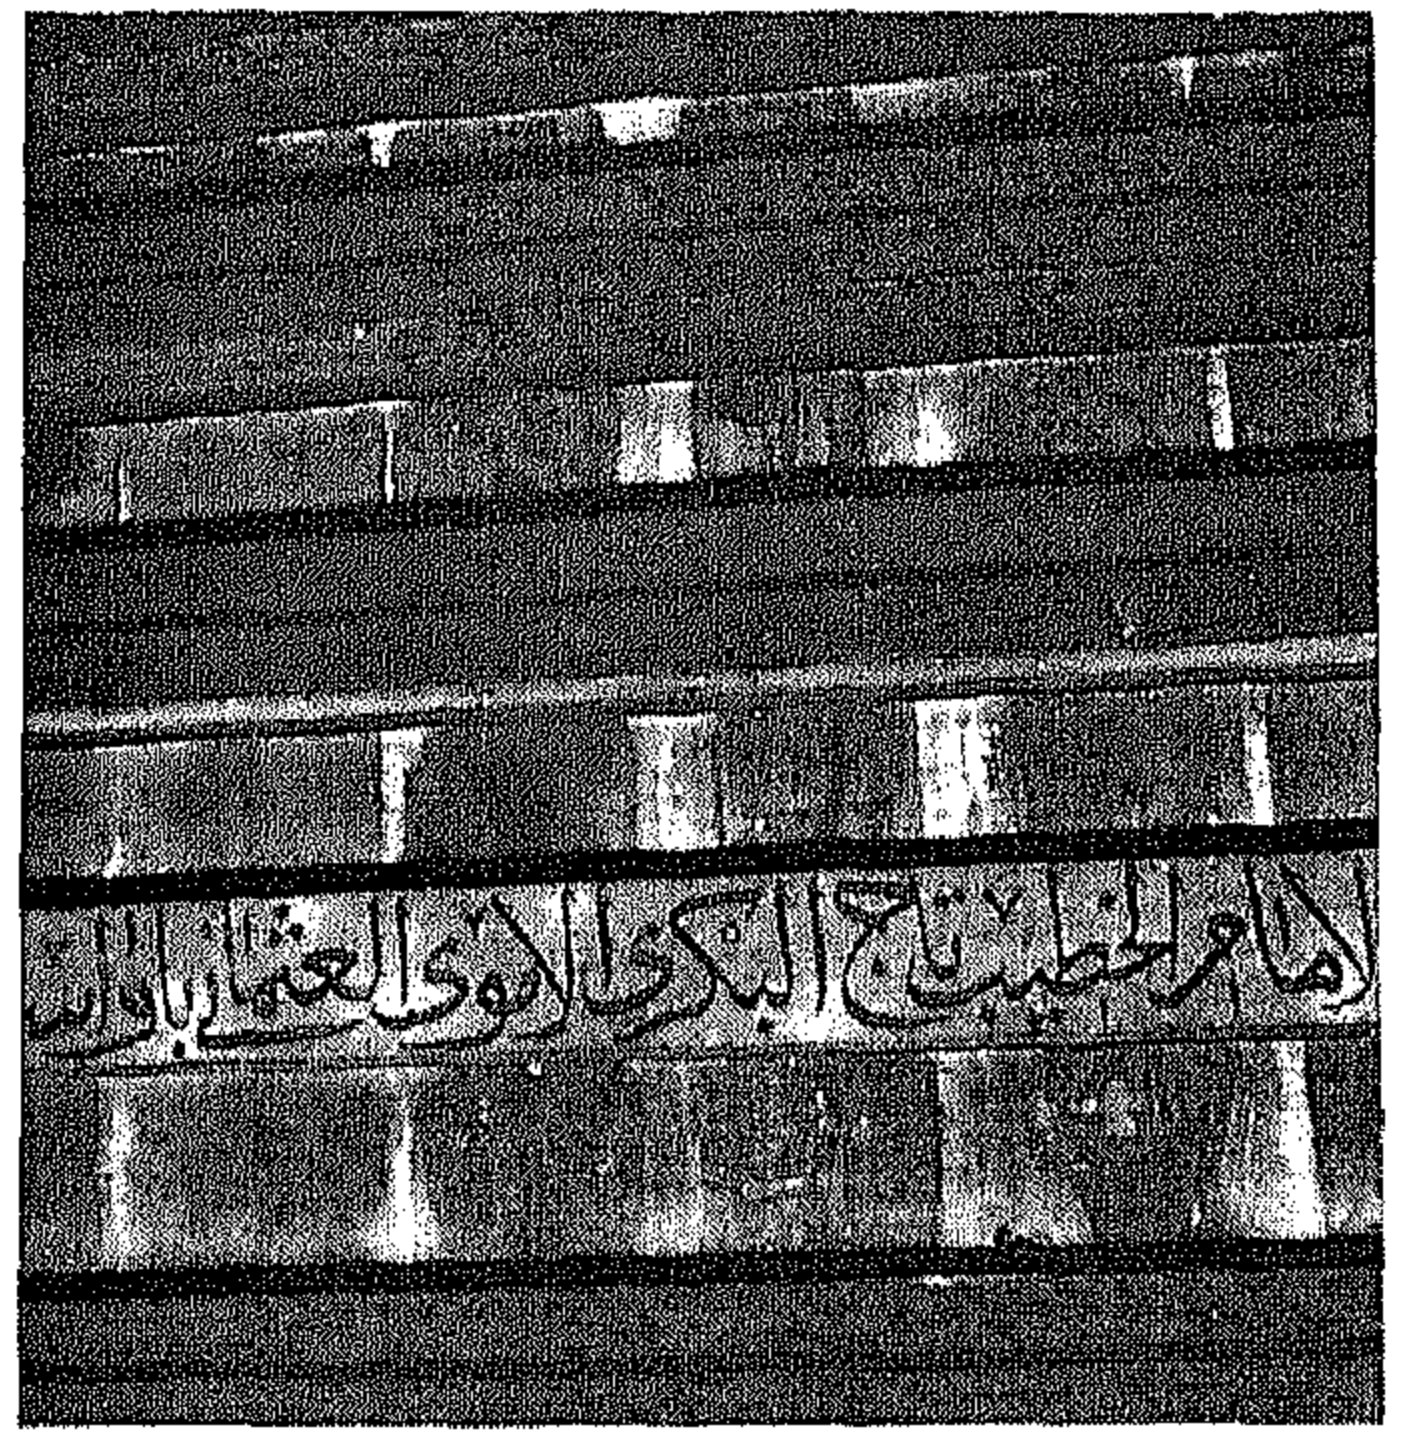 الامام الخطيب تاج البكرى الاموى العثمانى